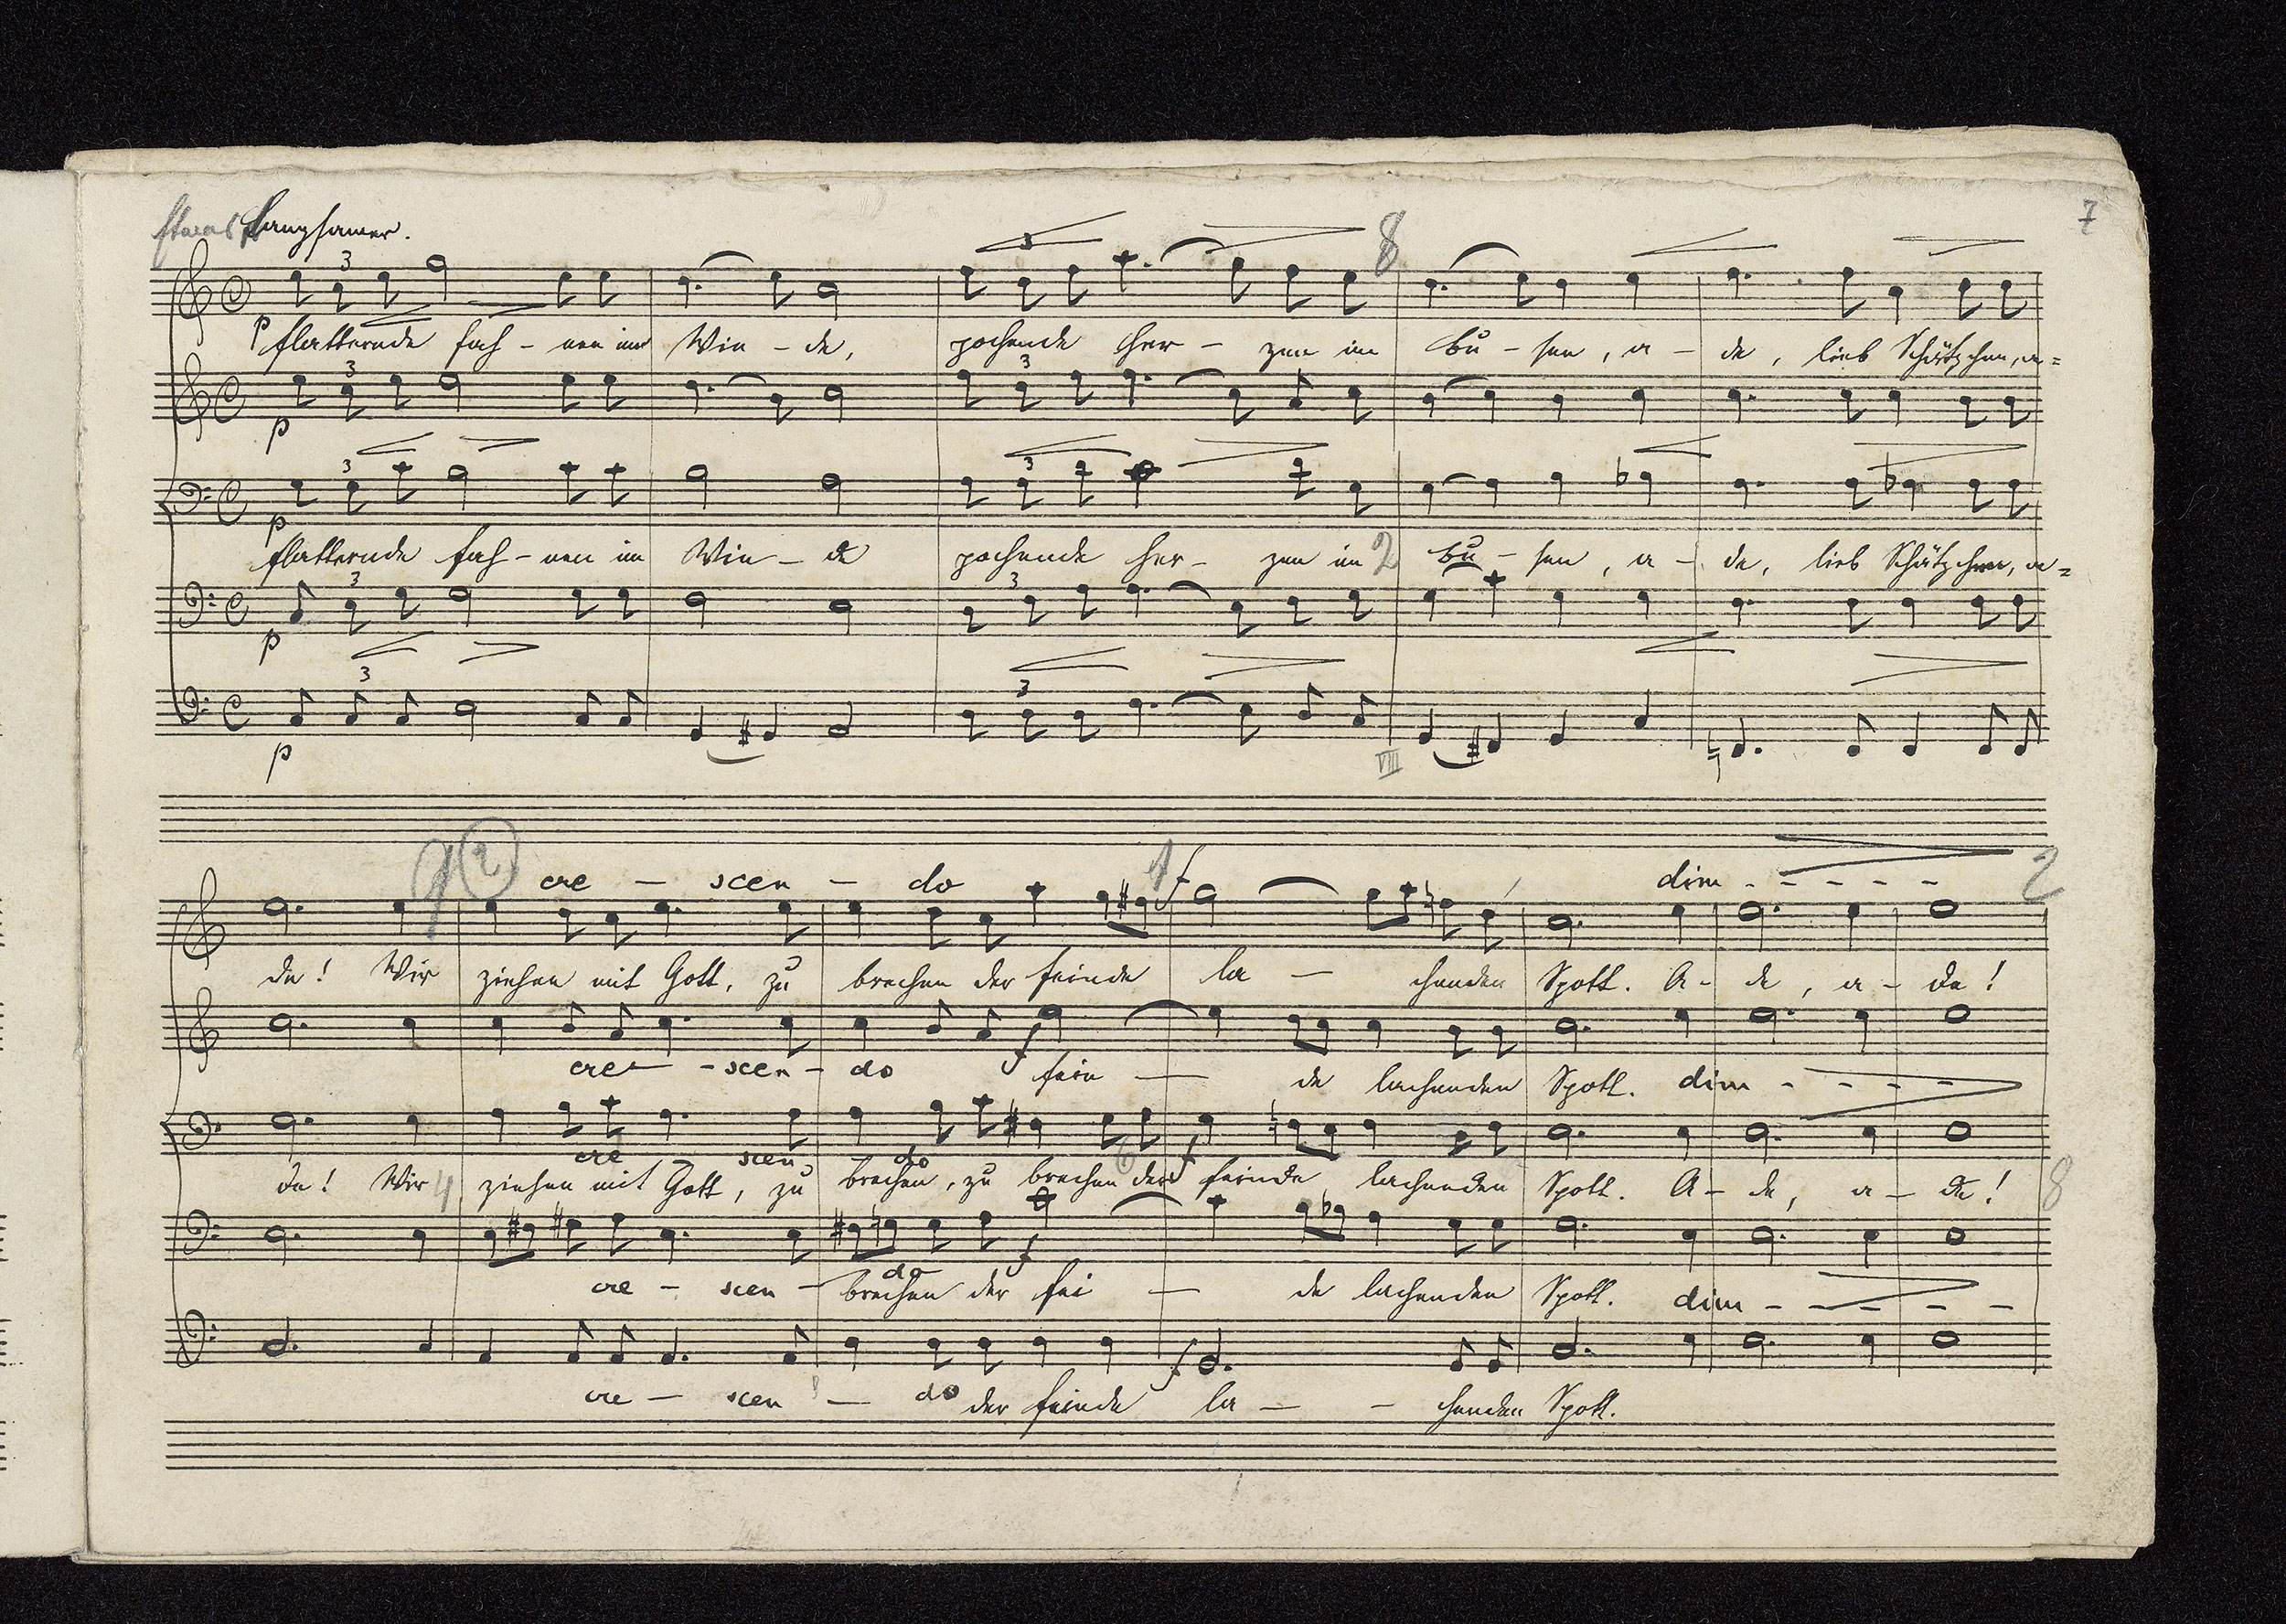 7
Etwas Langsamer.
3 3 8
p flatternde Fah - nen im Win - de, pochende Her - zen im Bu - sen, a - de, lieb Schätzchen, a=
3 3
p
3 3
p
flatternde Fah - nen im Win - de pochende Her - zen im 2 Bu - sen, a - de, lieb Schätzchen, a=
3 3
p
3 3
p
VIII
9 2 cre - scen - do f dim - - - - - 2
de! Wir ziehen mit Gott, zu brechen der Feinde la - chenden Spott. A - de, a - de!
f
cre - scen - do Fein - de lachenden Spott. dim - - - -
cre - scen - do f
de! Wir 4 ziehen mit Gott, zu brechen, zu brechen der Feinde lachenden Spott. A - de, a - de! 8
f
cre - scen - do brechen der Fei - de lachenden Spott. dim - - - - -
f
cre - scen - do der Feinde la - - chenden Spott.